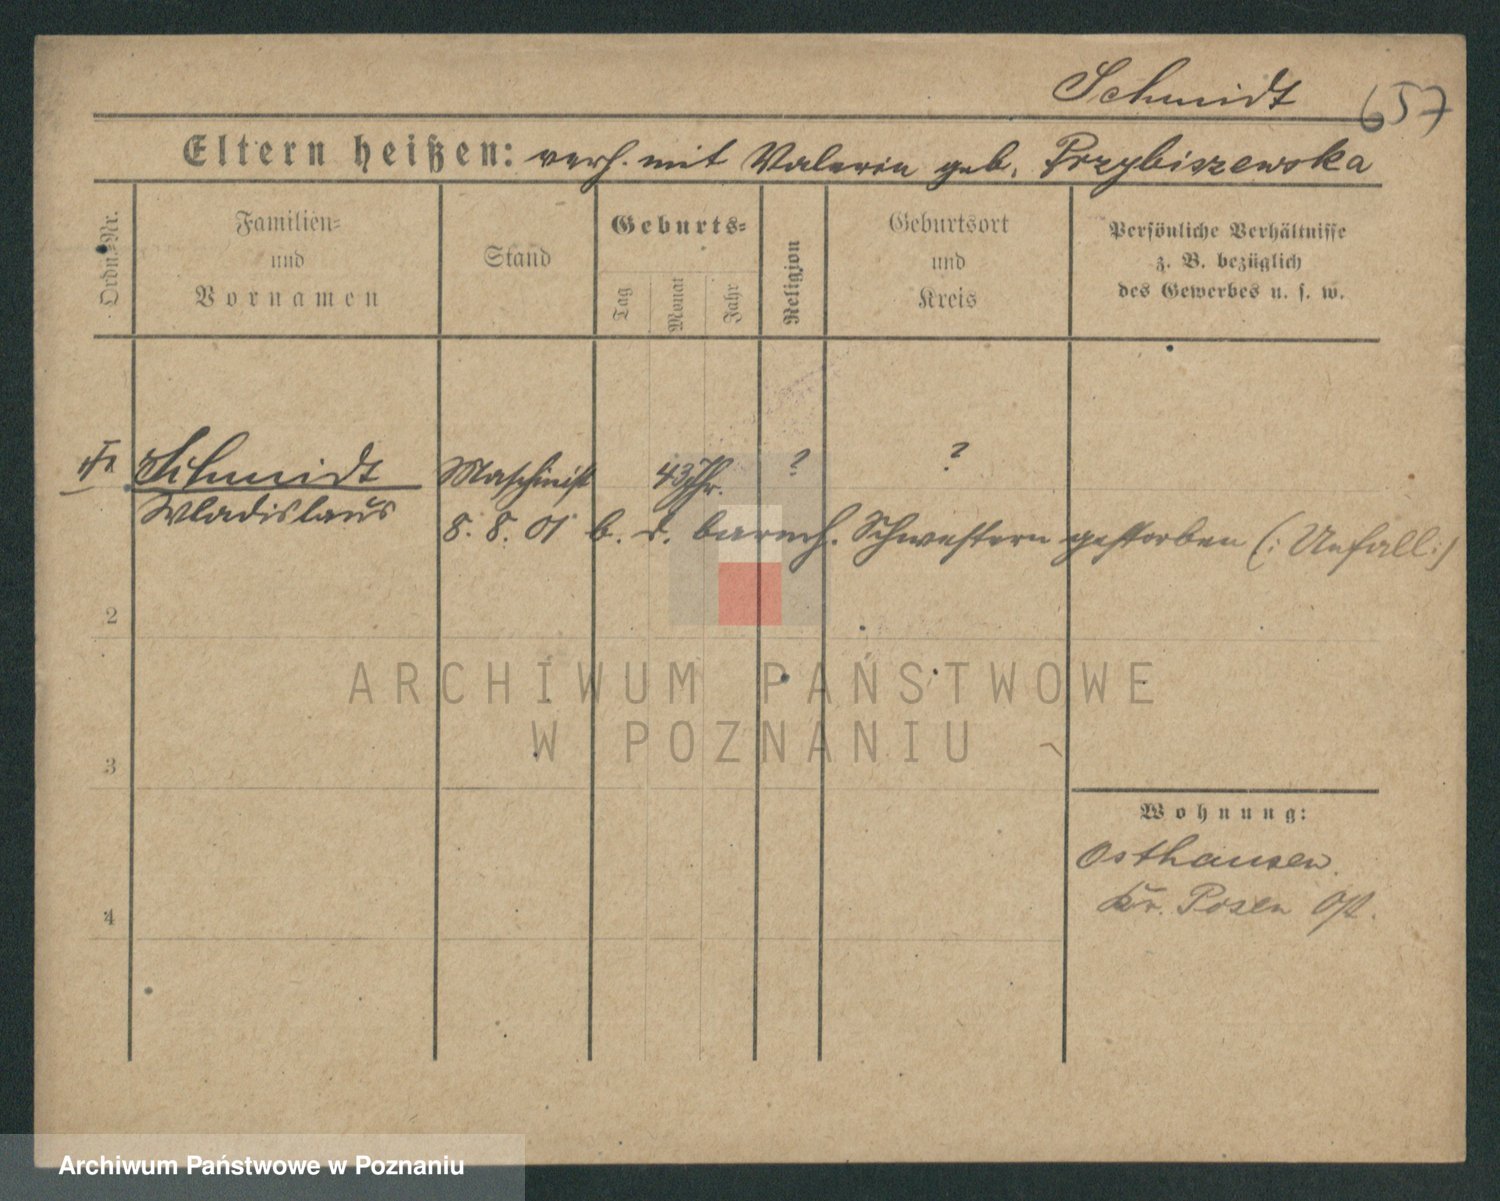 Schmidt 657
Eltern heißen: verh. mit Valeria geb. Przybiszewska
Ordn.-Nr.
Familien-
und
Vornamen
Stand
Geburts-
Tag
Monat
Jahr
Religion
Geburtsort
und
Kreis
Persönliche Verhältnisse
z. B. bezüglich
des Gewerbes u. s. w.
Schmidt Maschinist 43 Jhr. ? ?
Wladislaus
8. 8. 01 b. d. barmh. Schwestern gestorben (: Unfall :)
2
ARCHIWUM PAŃSTWOWE
W POZNANIU
3
Wohnung:
Osthausen.
Kr. Posen Ost.
4
Archiwum Państwowe w Poznaniu